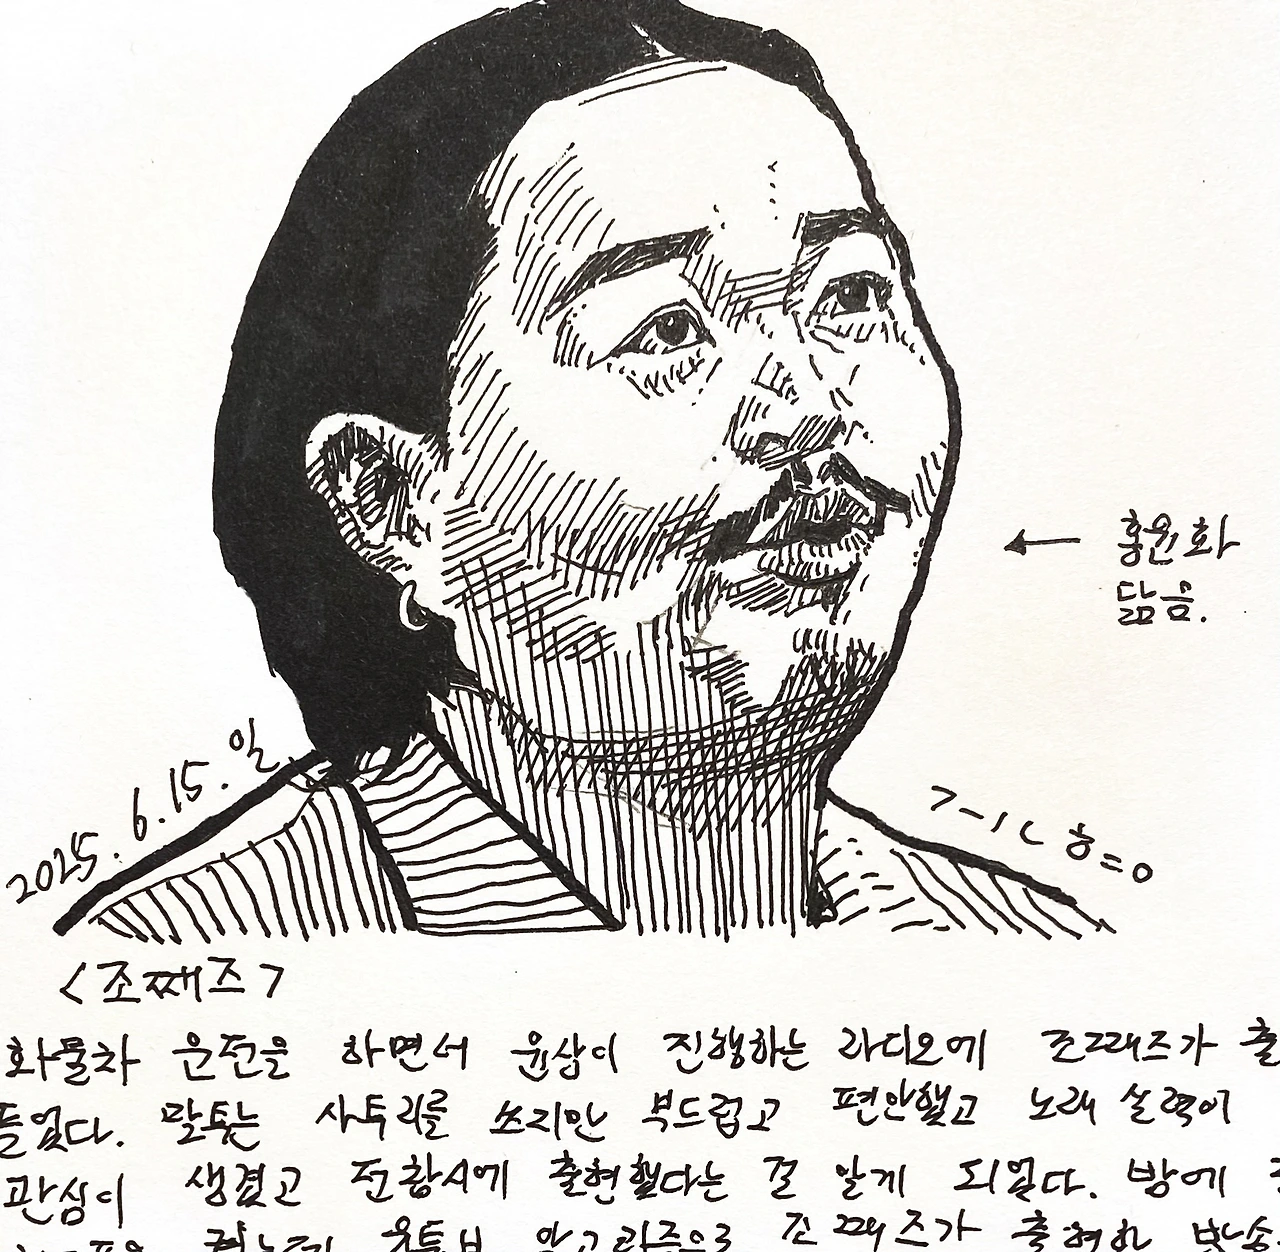 홍윤화
닮음.
2025. 6. 15. 일
<조째즈>
화물차 운전을 하면서 윤상이 진행하는 라디오에 조째즈가 출
들었다. 말투는 사투리를 쓰지만 부드럽고 편안했고 노래 실력이
관심이 생겼고 전참시에 출현했다는 걸 알게 되었다. 방에
조째즈가 출현한 방송